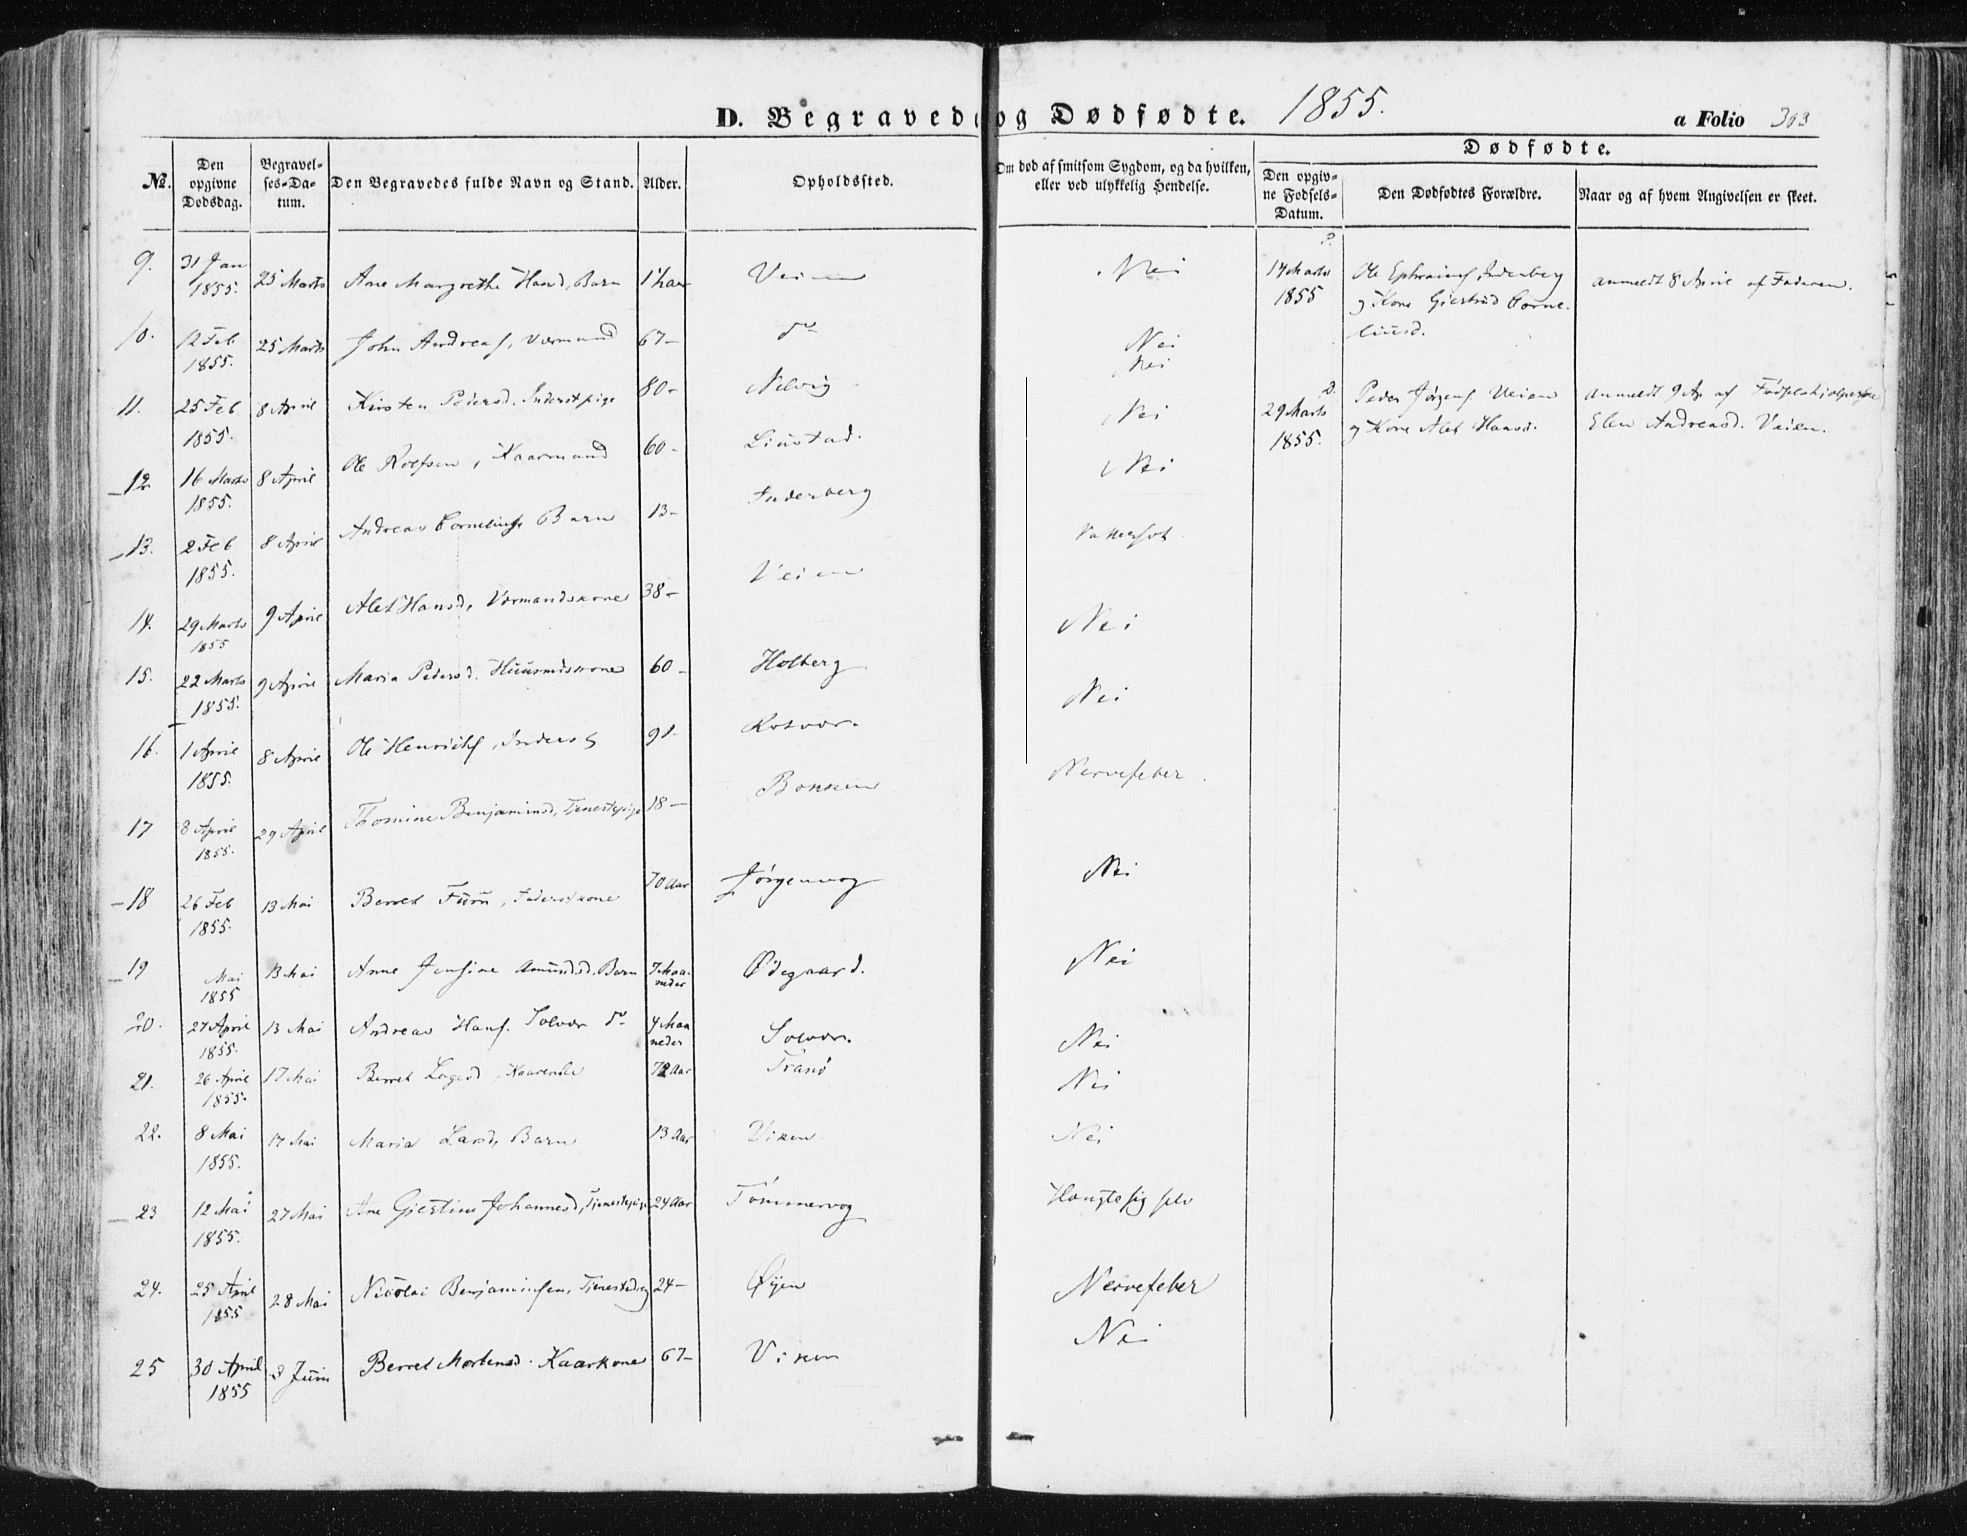 D. Begravede og Dødfødte. 1855.
a Folio 303
Dødfødte.
№.
Den opgivne Dødsdag.
Begravelses-Datum.
Den Begravedes fulde Navn og Stand.
Alder.
Opholdssted.
Om død af smitsom Sygdom, og da hvilken, eller ved ulykkelig Hendelse.
Den opgivne Fødsels-Datum.
Den Dødfødtes Forældre.
Naar og af hvem Angivelsen er skeet.
9. 31 Jan 1855. 25 Marts Ane Margrethe Haard, Barn Veien Nei
14 Marts 1855 Ole Ephraims. Inderberg og Kone Giertrud Corneliusd. anmeldt 8 April af Faderen.
10. 12 Feb 1855. 25 Marts John Andreas. 67- do Nei
11. 25 Feb 1855. 8 April Kirsten Pedersd. Inderstpige 80- Nelvig Nei
29 Marts 1855. Peder Jørgens. Veien og Kone Alet Hansd. anmeldt 9 Ap. af Elen Andreasd. Veien.
12. 16 Marts 1855. 8 April Ole Rolfsen, Kaarmand 60- Liustad. Nei
13. 2 Feb 1855. 8 April Andreas Cornelius. Barn 13- Inderberg Nei
14. 29 Marts 1855 9 April Alet Hansd, 38- Veien
15. 22 Marts 1855. 9 April Maria Pedersd. Huusmdskone 60- Holberg Nei
16. 1 April 1855. 8 April Ole Henrichs. Inderst Rosvor. Nei
17 8 April 1855. 29 April Thomine Benjaminsd, Tjenestepige 18- Nervefeber
18 26 Feb 1855. 13 Mai Berret Furu, Inderstkone 70 Aar Jørgenvog Nei
19 Mai 1855 13 Mai Anne Jensine Amundsd. Barn 7 Maaneder Ødegaard. Nei
20. 27 April 1855. 13 Mai Andreas Hans. Solvor do 4 Maaneder Solvor. Nei
21. 26 April 1855. 17 Mai Berret 72 Aar Tranø Nei
22. 8 Mai 1855. 17 Mai Maria Larsd, Barn 13 Aar Viken Nei
23 12 Mai 1855. 27 Mai Ane Giertine Johannesd, Tjenestepige 24 Aar Tømmervog Hængte sig selv
24. 25 April 1855 28 Mai Nicolai Benjaminsen, Tjenestedreng 24- Øyen Nervefeber
25 30 April 1855 3 Juni Berret Mortensd. Kaarkone 67- Viken Nei